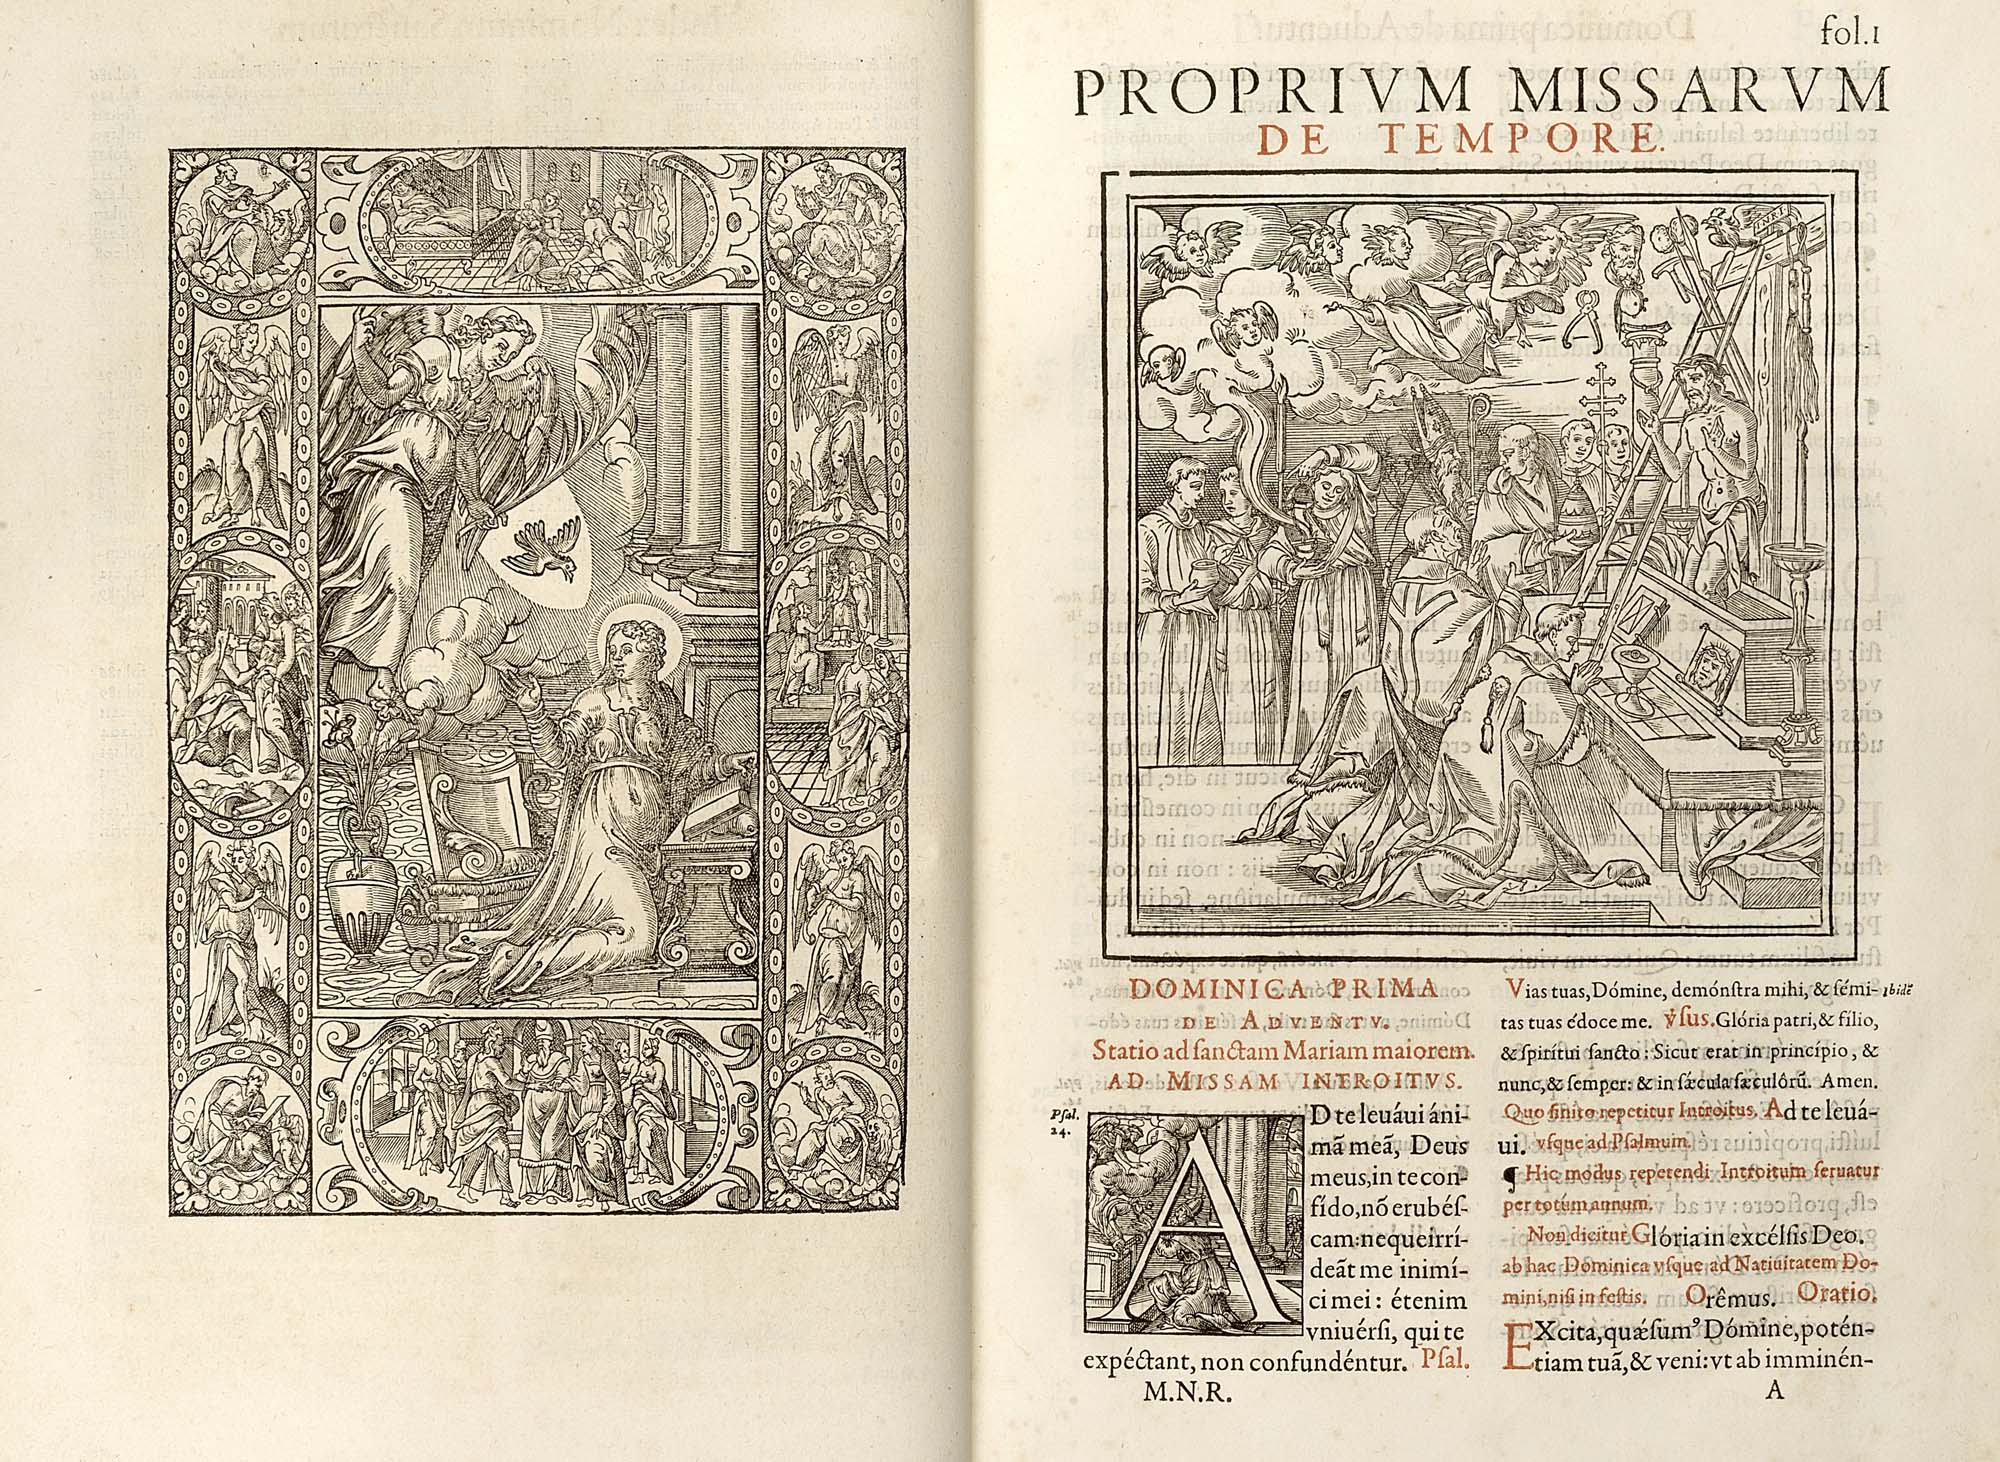 fol.1
PROPRIVM MISSARVM
DE TEMPORE.
DOMINICA PRIMA
DE ADVENTV.
Statio ad sanctam Mariam maiorem.
AD MISSAM INTROITVS.
Psal.
24.
AD te leuáui áni-
mã meã, Deus
meus, in te con-
fído, nõ erubés-
cam: neque irrí-
deãt me inimí-
ci mei: étenim
vniuérsi, qui te
expéctant, non confundéntur. Psal.
M.N.R.
Vias tuas, Dómine, demónstra mihi, & sémi-
Ibidẽ
tas tuas édoce me. ℣sus. Glória patri, & fílio,
& spirítui sancto: Sicut erat in princípio, &
nunc, & semper: & in sæcula sæculórũ. Amen.
Quo finito repetitur Introitus. Ad te leuá-
ui. vsque ad Psalmum.
¶ Hic modus repetendi Introitum seruatur
per totum annum.
Non dicitur Glória in excélsis Deo.
ab hac Dominica vsque ad Natiuitatem Do-
mini, nisi in festis. Orêmus. Oratio.
EXcita, quǽsumꝰ Dómine, potén-
tiam tuã, & veni: vt ab imminén-
A